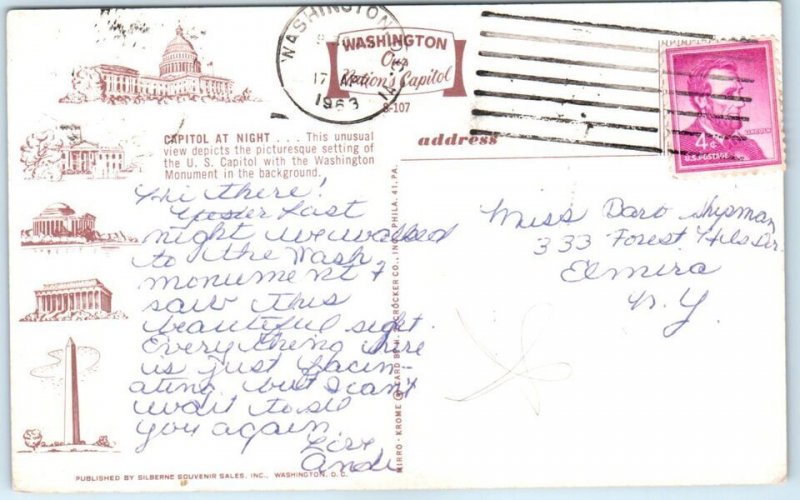 WASHINGTON
17 APR
1963
WASHINGTON
Our
Nation's Capitol
S-107
4¢
LINCOLN
U.S. POSTAGE
CAPITOL AT NIGHT . . . . This unusual
view depicts the picturesque setting of
the U. S. Capitol with the Washington
Monument in the background.
address
Hi there!
Yester Last
night we walked
to the Wash.
monument &
saw this
beautiful sight.
Everything here
is just facin-
ating but I can't
wait to see
you again
Love
Miss Shipman
333 Forest Hills Dr.
Elmira
N.Y
MIRRO-KROME CARD BY H. S. CROCKER CO., INC., PHILA. 41, PA.
PUBLISHED BY SILBERNE SOUVENIR SALES, INC., WASHINGTON, D. C.